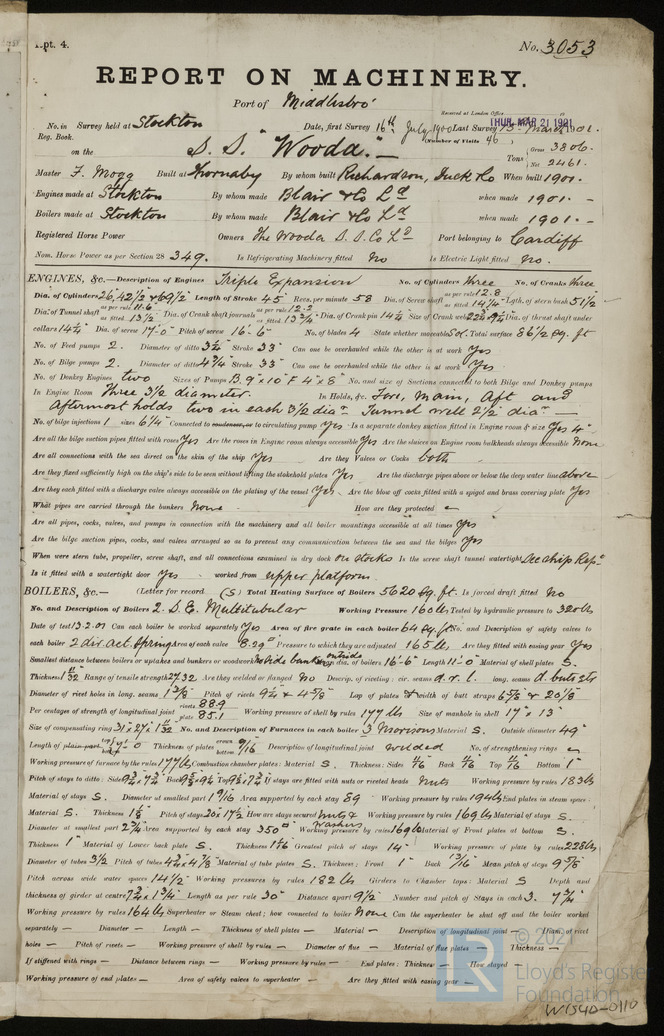 Rpt. 4.
No. 3053
REPORT ON MACHINERY.
Port of Middlesbro'
Received at London Office THUR. MAR 21 1901
No. in Survey held at Stockton Date, first Survey 16th July 1900 Last Survey 13th March 1901.
Reg. Book. (Number of Visits 46
on the S. S. "Wooda" Tons Gross 3806. Net 2461.
Master F. Mogg Built at Thornaby By whom built Richardson, Duck & Co When built 1901.
Engines made at Stockton By whom made Blair & Co Ld when made 1901.
Boilers made at Stockton By whom made Blair & Co Ld when made 1901.
Registered Horse Power Owners The Wooda S. S. Co Ld Port belonging to Cardiff
Nom. Horse Power as per Section 28 349. Is Refrigerating Machinery fitted No Is Electric Light fitted No.
ENGINES, &c.—Description of Engines Triple Expansion No. of Cylinders three No. of Cranks three
Dia. of Cylinders 26, 42½ & 69½ Length of Stroke 45 Revs. per minute 58 Dia. of Screw shaft as per rule 12.8 as fitted 14¼ Lgth. of stern bush 51½
Dia. of Tunnel shaft as per rule 11.6 as fitted 13½ Dia. of Crank shaft journals as per rule 12.2 as fitted 13¾ Dia. of Crank pin 14¼ Size of Crank webs Dia. of thrust shaft under
collars 14¼ Dia. of screw 17-0 Pitch of screw 16-6 No. of blades 4 State whether moveable Sol. Total surface 86½ sq. ft
No. of Feed pumps 2. Diameter of ditto 3¾ Stroke 33" Can one be overhauled while the other is at work Yes
No. of Bilge pumps 2. Diameter of ditto 4¾ Stroke 33" Can one be overhauled while the other is at work Yes
No. of Donkey Engines two Sizes of Pumps B. 9"x10" F 4"x8" No. and size of Suctions connected to both Bilge and Donkey pumps
In Engine Room Three 3½ diameter. In Holds, &c. Fore, Main, Aft and
Aftermost holds two in each 3½ diar. Tunnel well 2½ diar
No. of bilge injections 1 sizes 6¼ Connected to condenser, or to circulating pump Yes Is a separate donkey suction fitted in Engine room & size Yes 4"
Are all the bilge suction pipes fitted with roses Yes Are the roses in Engine room always accessible Yes Are the sluices on Engine room bulkheads always accessible None
Are all connections with the sea direct on the skin of the ship Yes Are they Valves or Cocks both
Are they fixed sufficiently high on the ship's side to be seen without lifting the stokehold plates Yes Are the discharge pipes above or below the deep water line above
Are they each fitted with a discharge valve always accessible on the plating of the vessel Yes. Are the blow off cocks fitted with a spigot and brass covering plate Yes
What pipes are carried through the bunkers None How are they protected —
Are all pipes, cocks, valves, and pumps in connection with the machinery and all boiler mountings accessible at all times Yes
Are the bilge suction pipes, cocks, and valves arranged so as to prevent any communication between the sea and the bilges Yes
When were stern tube, propeller, screw shaft, and all connections examined in dry dock on stocks Is the screw shaft tunnel watertight See ship Rept
Is it fitted with a watertight door Yes worked from upper platform.
BOILERS, &c.— (Letter for record (S) Total Heating Surface of Boilers 5620 sq. ft. Is forced draft fitted No
No. and Description of Boilers 2. S. E. Multitubular Working Pressure 160 lbs Tested by hydraulic pressure to 320 lbs
Date of test 13.2.01 Can each boiler be worked separately Yes Area of fire grate in each boiler 64 sq. ft No. and Description of safety valves to
each boiler 2 dir. act. Spring Area of each valve 8.29" Pressure to which they are adjusted 165 lbs Are they fitted with easing gear Yes
Smallest distance between boilers or uptakes and bunkers or woodwork outside dia. of boilers 16-6" Length 11-0 Material of shell plates S.
Thickness Range of tensile strength 27.32 Are they welded or flanged No Descrip. of riveting: cir. seams d.r.l. long. seams d. butts
Diameter of rivet holes in long. seams Pitch of rivets 9¼ & 4⅝ Lap of plates & width of butt straps 6⅝ & 20⅛
Per centages of strength of longitudinal joint rivets 88.9 plate 85.1 Working pressure of shell by rules 177 lbs Size of manhole in shell 17" x 13"
Size of compensating ring No. and Description of Furnaces in each boiler 3 Morisons Material S. Outside diameter 49"
Length of plain part Thickness of plates crown bottom 9/16 Description of longitudinal joint welded No. of strengthening rings —
Working pressure of furnace by the rules 177 lbs Combustion chamber plates: Material S. Thickness: Sides Back Top Bottom 1"
Pitch of stays to ditto: Sides Back Top If stays are fitted with nuts or riveted heads Nuts Working pressure by rules 183 lbs
Material of stays S. Diameter at smallest part 1 9/16 Area supported by each stay 89 Working pressure by rules 194 lbs End plates in steam space:
Material S. Thickness Pitch of stays How are stays secured nuts & washers Working pressure by rules 169 lbs Material of stays S.
Diameter at smallest part 2¾ Area supported by each stay 350" Working pressure by rules 169 lbs Material of Front plates at bottom S.
Thickness 1" Material of Lower back plate S. Thickness Greatest pitch of stays 14" Working pressure of plate by rules 228 lbs
Diameter of tubes 3½ Pitch of tubes Material of tube plates S. Thickness: Front 1" Back 13/16 Mean pitch of stays 9⅝
Pitch across wide water spaces 14½ Working pressures by rules 182 lbs Girders to Chamber tops: Material S Depth and
thickness of girder at centre 7¾ x 1¾ Length as per rule 30" Distance apart 9½ Number and pitch of Stays in each 3. 7¾
Working pressure by rules 164 lbs Superheater or Steam chest; how connected to boiler None Can the superheater be shut off and the boiler worked
separately — Diameter — Length — Thickness of shell plates — Material — Description of longitudinal joint — Diam. of rivet
holes — Pitch of rivets — Working pressure of shell by rules — Diameter of flue — Material of flue plates — Thickness —
If stiffened with rings — Distance between rings — Working pressure by rules — End plates: Thickness — How stayed —
Working pressure of end plates — Area of safety valves to superheater — Are they fitted with easing gear —
LR
© 2021
Lloyd's Register
Foundation
W1540-0110